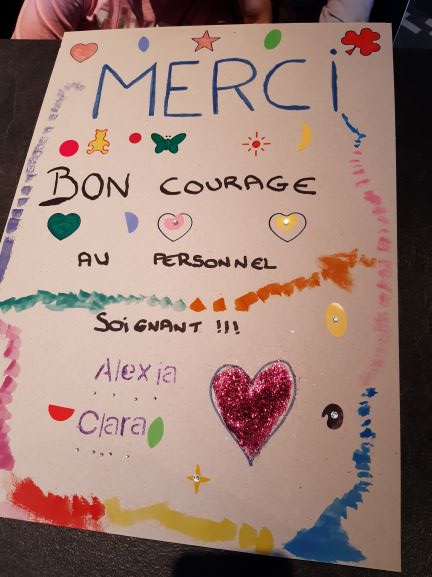 MERCi
BON COURAGE
AU PERSONNEL
SOIGNANT !!!
Alexia
Clara